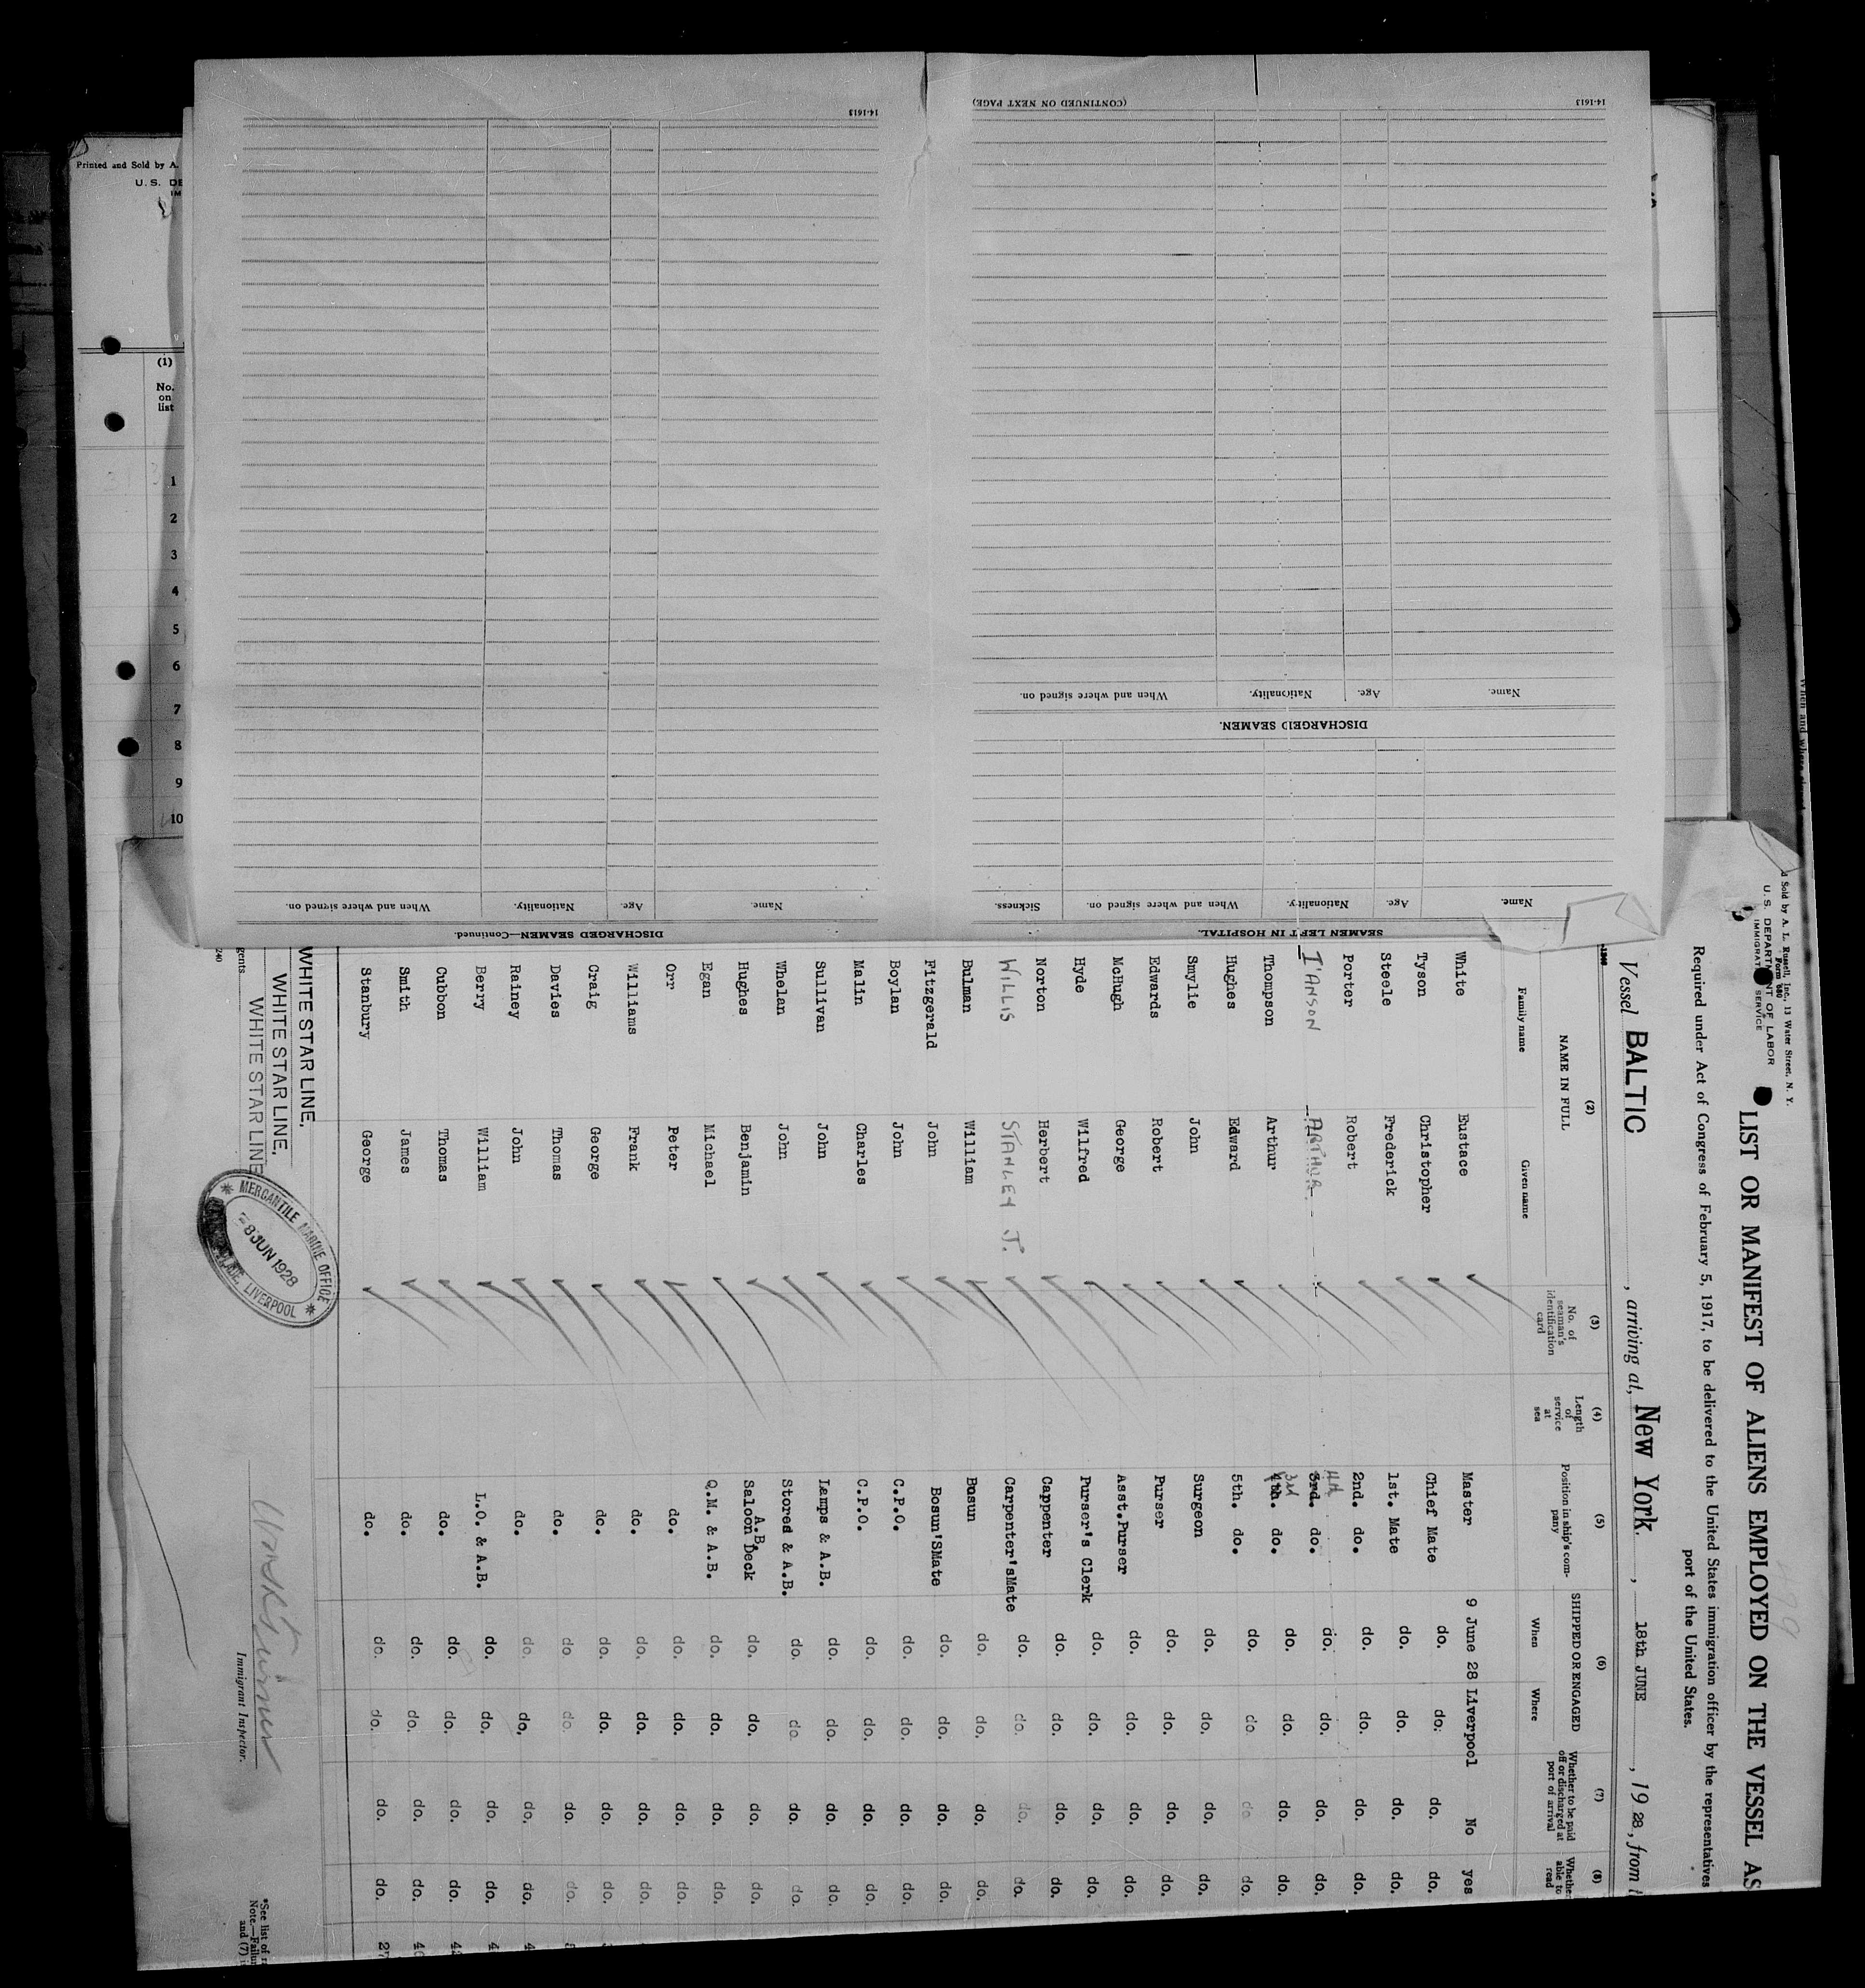 Printed and Sold by A.
U. S. DE
IM
(1)
No.
on
list
1
2
3
4
5
6
7
8
9
10
14-1613
DISCHARGED SEAMEN—Continued.
Name. Age. Nationality. When and where signed on.
SEAMEN LEFT IN HOSPITAL.
Name. Age. Nationality. When and where signed on. Sickness.
DISCHARGED SEAMEN.
Name. Age. Nationality. When and where signed on.
(CONTINUED ON NEXT PAGE)
14-1613
When and where signed
d Sold by A. L. Russell, Inc., 13 Water Street, N. Y.
Form 680
U. S. DEPARTMENT OF LABOR
IMMIGRATION SERVICE
LIST OR MANIFEST OF ALIENS EMPLOYED ON THE VESSEL AS
Required under Act of Congress of February 5, 1917, to be delivered to the United States immigration officer by the representatives
port of the United States.
Vessel BALTIC, arriving at, New York, 18th JUNE, 1928, from
(2) (3) (4) (5) (6) (7) (8)
NAME IN FULL
Family name Given name
No. of seaman's identification card
Length of service at sea
Position in ship's company
SHIPPED OR ENGAGED
When Where
Whether to be paid off or discharged at port of arrival
Whether able to read
White Eustace Master 9 June 28 Liverpool No yes
Tyson Christopher Chief Mate do. do. do. do.
Steele Frederick 1st. Mate do. do. do. do.
Porter Robert 2nd. do. do. do. do. do.
I'ANSON ARTHUR. 3rd. 4th do. do. do. do. do.
Thompson Arthur 4th. 3rd do. do. do. do. do.
Hughes Edward 5th. do. do. do. do. do.
Smylie John Surgeon do. do. do. do.
Edwards Robert Purser do. do. do. do.
McHugh George Asst.Purser do. do. do. do.
Hyde Wilfred Purser's Clerk do. do. do. do.
Norton Herbert Cappenter do. do. do. do.
WILLIS STANLEY J. Carpenter'sMate do. do. do. do.
Bulman William Bosun do. do. do. do.
Fitzgerald John Bosun'SMate do. do. do. do.
Boylan John C.P.O. do. do. do. do.
Malin Charles C.P.O. do. do. do. do.
Sullivan John Lamps & A.B. do. do. do. do.
Whelan John Stores & A.B. do. do. do. do.
Hughes Benjamin Saloon Deck A.B. do. do. do. do.
Egan Michael Q.M. & A.B. do. do. do. do.
Orr Peter do. do. do. do. do.
Williams Frank do. do. do. do. do.
Craig George do. do. do. do. do.
Davies Thomas do. do. do. do. do.
Rainey John do. do. do. do. do.
Berry William L.O. & A.B. do. do. do. do.
Cubbon Thomas do. do. do. do. do.
Smith James do. do. do. do. do.
Stanbury George do. do. do. do. do. 27
WHITE STAR LINE,
WHITE STAR LINE,
WHITE STAR LINE
gents
MERCANTILE MARINE OFFICE
8 JUN 1928
LIVERPOOL
Immigrant Inspector.
*See list of r
Note.—Failu
and (7) i